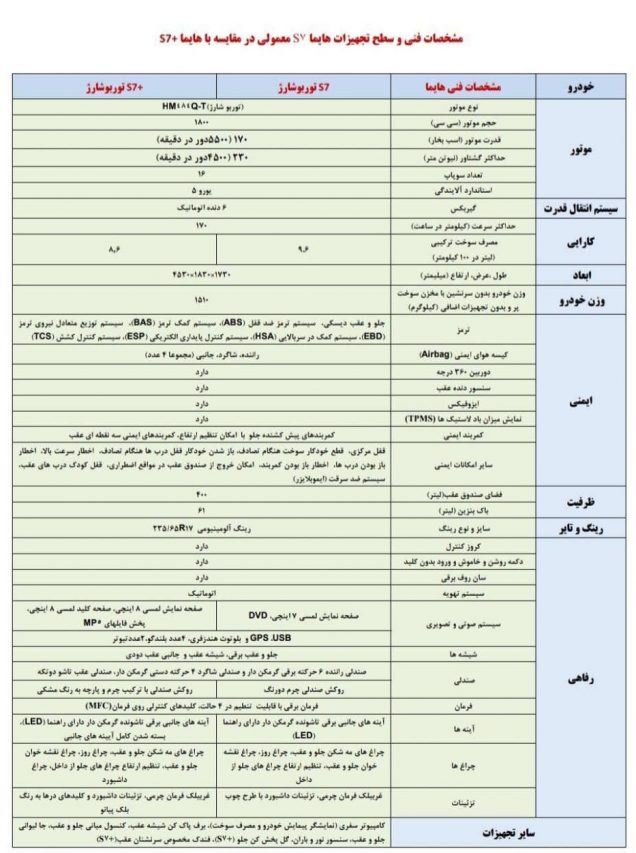 مشخصات فنی و سطح تجهیزات هایما S۷ معمولی در مقایسه با هایما +S7
خودرو مشخصات فنی هایما S7 توربوشارژ +S7 توربوشارژ
موتور
نوع موتور (توربو شارژ)HM۴۸۴Q-T
حجم موتور (سی سی) ۱۸۰۰
قدرت موتور (اسب بخار) ۱۷۰ (۵۵۰۰دور در دقیقه)
حداکثر گشتاور (نیوتن متر) ۲۳۰ (۴۵۰۰دور در دقیقه)
تعداد سوپاپ ۱۶
استاندارد آلایندگی یورو ۵
سیستم انتقال قدرت گیربکس ۶ دنده اتوماتیک
کارایی
حداکثر سرعت (کیلومتر در ساعت) ۱۷۰
مصرف سوخت ترکیبی
(لیتر در ۱۰۰ کیلومتر)
۹,۶ ۸,۶
ابعاد طول ،عرض، ارتفاع (میلیمتر) ۴۵۳۰×۱۸۳۰×۱۷۳۰
وزن خودرو
وزن خودرو بدون سرنشین با مخزن سوخت
پر و بدون تجهیزات اضافی (کیلوگرم)
۱۵۱۰
ایمنی
ترمز
جلو و عقب دیسکی، سیستم ترمز ضد قفل (ABS)، سیستم کمک ترمز (BAS)، سیستم توزیع متعادل نیروی ترمز
(EBD)، سیستم کمک در سربالایی (HSA)، سیستم کنترل پایداری الکتریکی (ESP)، سیستم کنترل کشش (TCS)
کیسه هوای ایمنی (Airbag) راننده، شاگرد، جانبی (مجموعا ۴ عدد)
دوربین ۳۶۰ درجه دارد
سنسور دنده عقب دارد
ایزوفیکس دارد
نمایش میزان باد لاستیک ها (TPMS) دارد
کمربند ایمنی کمربندهای پیش کشنده جلو با امکان تنظیم ارتفاع، کمربندهای ایمنی سه نقطه ای عقب
سایر امکانات ایمنی
قفل مرکزی، قطع خودکار سوخت هنگام تصادف، باز شدن خودکار قفل درب ها هنگام تصادف، اخطار سرعت بالا، اخطار
باز بودن درب ها، اخطار باز بودن کمربند، امکان خروج از صندوق عقب در مواقع اضطراری، قفل کودک درب های عقب،
سیستم ضد سرقت (ایموبلایزر)
ظرفیت
فضای صندوق عقب(لیتر) ۴۰۰
باک بنزین (لیتر) ۶۱
رینگ و تایر سایز و نوع رینگ رینگ آلومینیومی ۲۳۵/۶۵R۱۷
رفاهی
کروز کنترل دارد
دکمه روشن و خاموش و ورود بدون کلید دارد
سان روف برقی دارد
سیستم تهویه اتوماتیک
سیستم صوتی و تصویری
صفحه نمایش لمسی ۷ اینچی، DVD
صفحه نمایش لمسی ۸ اینچی، صفحه کلید لمسی ۸ اینچی،
پخش فایلهای MP۵
GPS ،USB و بلوتوث هندزفری، ۴عدد بلندگو،۲عددتیوتر
شیشه ها جلو و عقب برقی، شیشه عقب و جانبی عقب دودی
صندلی
صندلی راننده ۶ حرکته برقی گرمکن دار و صندلی شاگرد ۴ حرکته دستی گرمکن دار، صندلی عقب تاشو دوتکه
روکش صندلی چرم دورنگ روکش صندلی با ترکیب چرم و پارچه به رنگ مشکی
فرمان فرمان برقی با قابلیت تنظیم در ۴ حالت، کلیدهای کنترلی روی فرمان(MFC)
آینه ها
آینه های جانبی برقی تاشونده گرمکن دار دارای راهنما
(LED)
آینه های جانبی برقی تاشونده گرمکن دار دارای راهنما (LED)،
بسته شدن کامل آیینه های جانبی
چراغ ها
چراغ های مه شکن جلو و عقب، چراغ روز، چراغ نقشه
خوان جلو و عقب، تنظیم ارتفاع چراغ های جلو از
داخل
چراغ های مه شکن جلو و عقب، چراغ روز، چراغ نقشه خوان
جلو و عقب، تنظیم ارتفاع چراغ های جلو از داخل، چراغ
داشبورد
تزئینات
غربیلک فرمان چرمی، تزئینات داشبورد با طرح چوب
غربیلک فرمان چرمی، تزئینات داشبورد و کلیدهای درها به رنگ
بلک پیانو
سایر تجهیزات
کامپیوتر سفری (نمایشگر پیمایش خودرو و مصرف سوخت)، برف پاک کن شیشه عقب، کنسول میانی جلو و عقب، جا لیوانی
جلو و عقب، سنسور نور و باران، گل پخش کن جلو (+S۷)، فندک مخصوص سرنشینان عقب(+S۷)